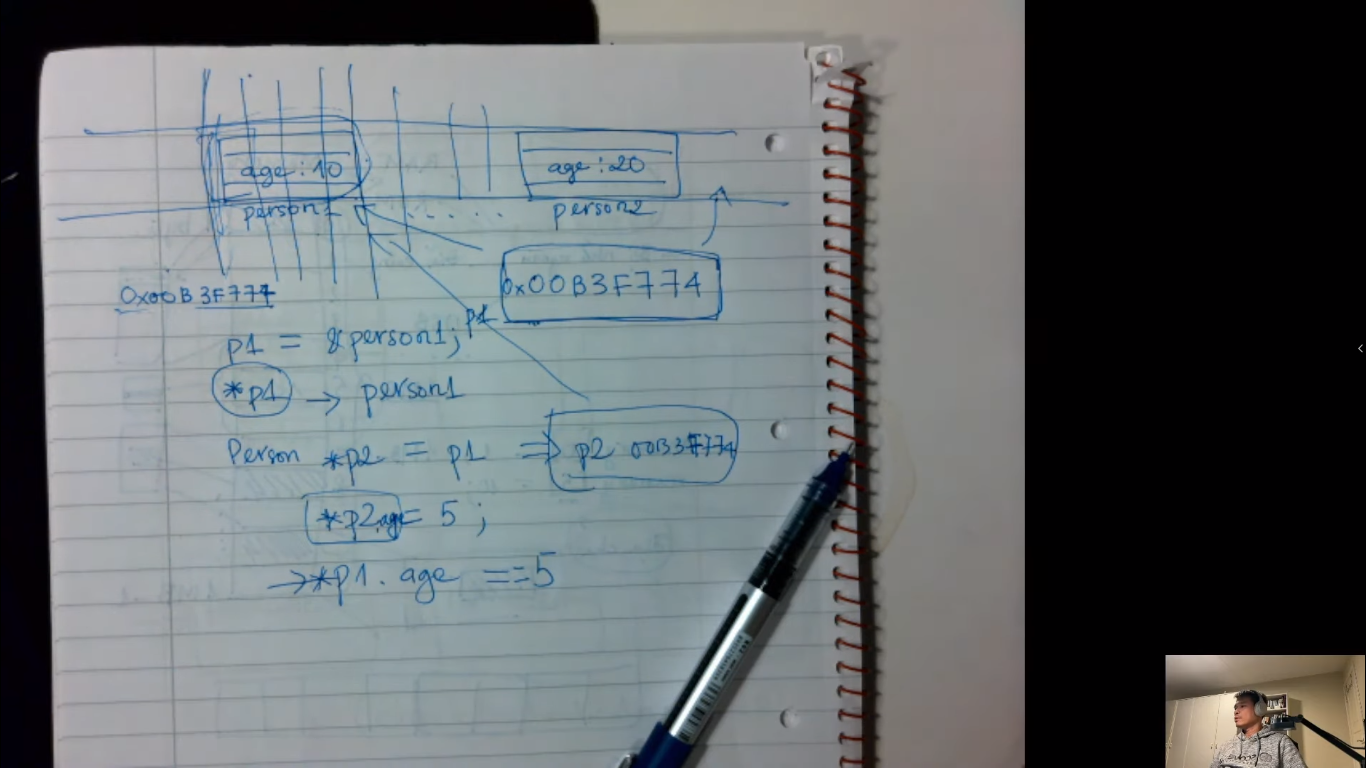 age : 10
age : 20
person1 . . . . . .
person2
0x00B3F774
0x00B3F774
p1
p1 = &person1;
*p1 → person1
Person *p2 = p1 ⇒ p2 00B3F774
*p2.age = 5 ;
→ *p1. age == 5